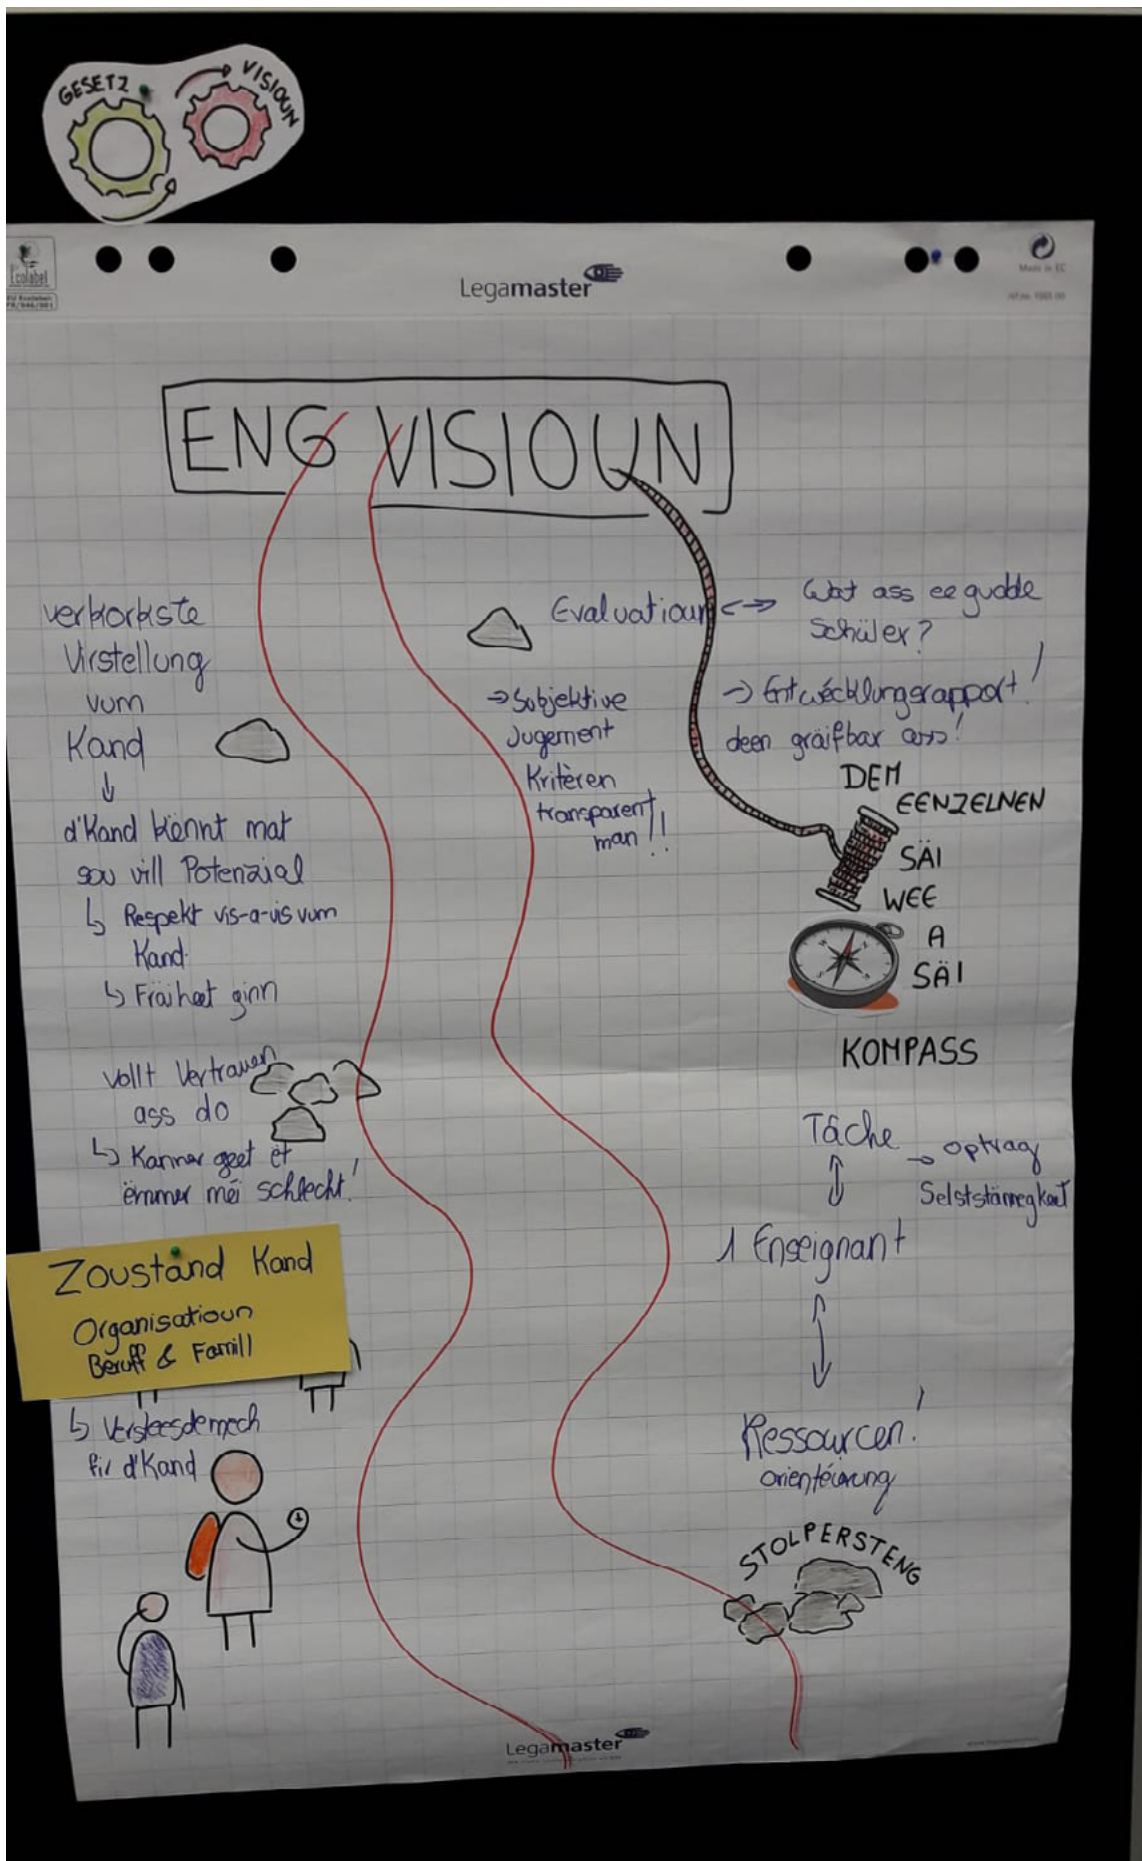 GESETZ
VISIOUN
Ecolabel
Legamaster
Made in EC
ENG VISIOUN
verkorkste
Virstellung
vum
Kand
↓
d'Kand kënnt mat
sou vill Potenzial
↳ Respekt vis-a-vis vum
Kand
↳ Fräiheet ginn
vollt Vertrauen
ass do
↳ Kanner geet et
ëmmer méi schlecht!
Zoustand Kand
Organisatioun
Beruff & Famill
↳ Versteesdemech
fir d'Kand
Evaluatioun <-> Wat ass ee gudde
Schüler?
→ Subjektive
Jugement
Kritèren
transparent
man!!
→ Entwécklungsrapport!
deen gräifbar ass!
DEM
EENZELNEN
SÄI
WEE
A
SÄI
KOMPASS
Tâche
→ Optrag
Selststännegkeet
1 Enseignant
Ressourcen!
orientéierung
STOLPERSTENG
Legamaster